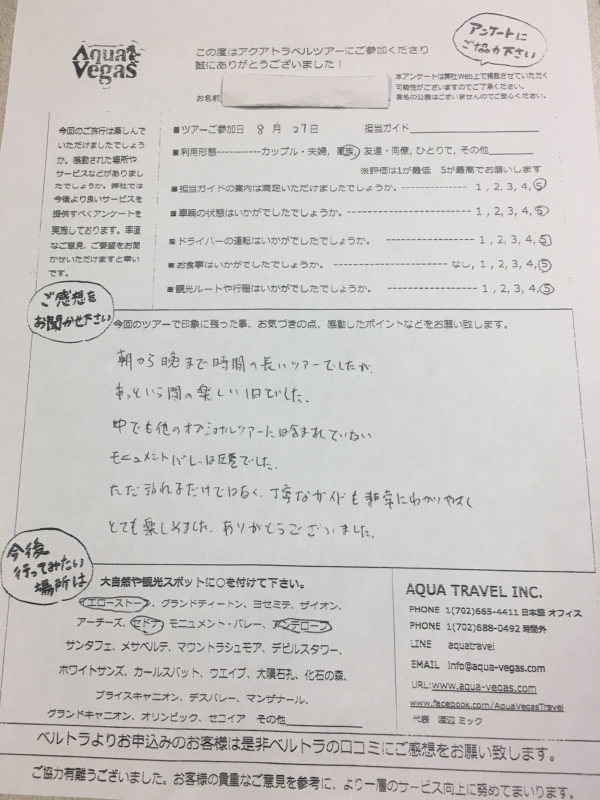 Aqua
Vegas
この度はアクアトラベルツアーにご参加くださり
誠にありがとうございました！
アンケートに
ご協力下さい
本アンケートは弊社Web上で掲載させていただく
可能性がございますのでご了承ください。
実名の公表はございませんのでご安心ください。
お名前
今回のご旅行は楽しんで
いただけましたでしょう
か。感動された場所や
サービスなどがありまし
たでしょうか。弊社では
今後より良いサービスを
提供すべくアンケートを
実施しております。率直
なご意見、ご要望をお聞
かせいただけますと幸い
です。
■ツアーご参加日 8月27日 担当ガイド
■利用形態-----------カップル・夫婦, 家族, 友達・同僚, ひとりで, その他
※評価は1が最低 5が最高でお願いします
■担当ガイドの案内は満足いただけましたでしょうか。------------------ 1, 2, 3, 4, 5
■車輌の状態はいかがでしたでしょうか。 ------------------ 1, 2, 3, 4, 5
■ドライバーの運転はいかがでしたでしょうか。 ------------------ 1, 2, 3, 4, 5
■お食事はいかがでしたでしょうか。 ------------------ なし, 1, 2, 3, 4, 5
■観光ルートや行程はいかがでしたでしょうか。------------------ 1, 2, 3, 4, 5
ご感想を
お聞かせ下さい
今回のツアーで印象に残った事、お気づきの点、感動したポイントなどをお願い致します。
朝から晩まで時間の長いツアーでしたが、
あっという間の楽しい1日でした。
中でも他のオプショナルツアーには含まれていない
モニュメントバレーは圧巻でした。
ただ訪れるだけではなく、丁寧なガイドも非常にわかりやすく
とても楽しめました。ありがとうございました。
今後
行ってみたい
場所は
大自然や観光スポットに○を付けて下さい。
イエローストーン、グランドティートン、ヨセミテ、ザイオン、
アーチーズ、セドナ、モニュメント・バレー、アンテロープ、
サンタフェ、メサベルテ、マウントラシュモア、デビルスタワー、
ホワイトサンズ、カールスバット、ウエイブ、大隕石孔、化石の森、
ブライスキャニオン、デスバレー、マンザナール、
グランドキャニオン、オリンピック、セコイア その他
AQUA TRAVEL INC.
PHONE 1(702)665-4411 日本語 オフィス
PHONE 1(702)688-0492 時間外
LINE aquatravel
EMAIL info@aqua-vegas.com
URL:www.aqua-vegas.com
www.facebook.com/AquaVegasTravel
代表 渡辺 ミック
ベルトラよりお申込みのお客様は是非ベルトラの口コミにご感想をお願い致します。
ご協力有難うございました。お客様の貴重なご意見を参考に、より一層のサービス向上に努めてまいります。